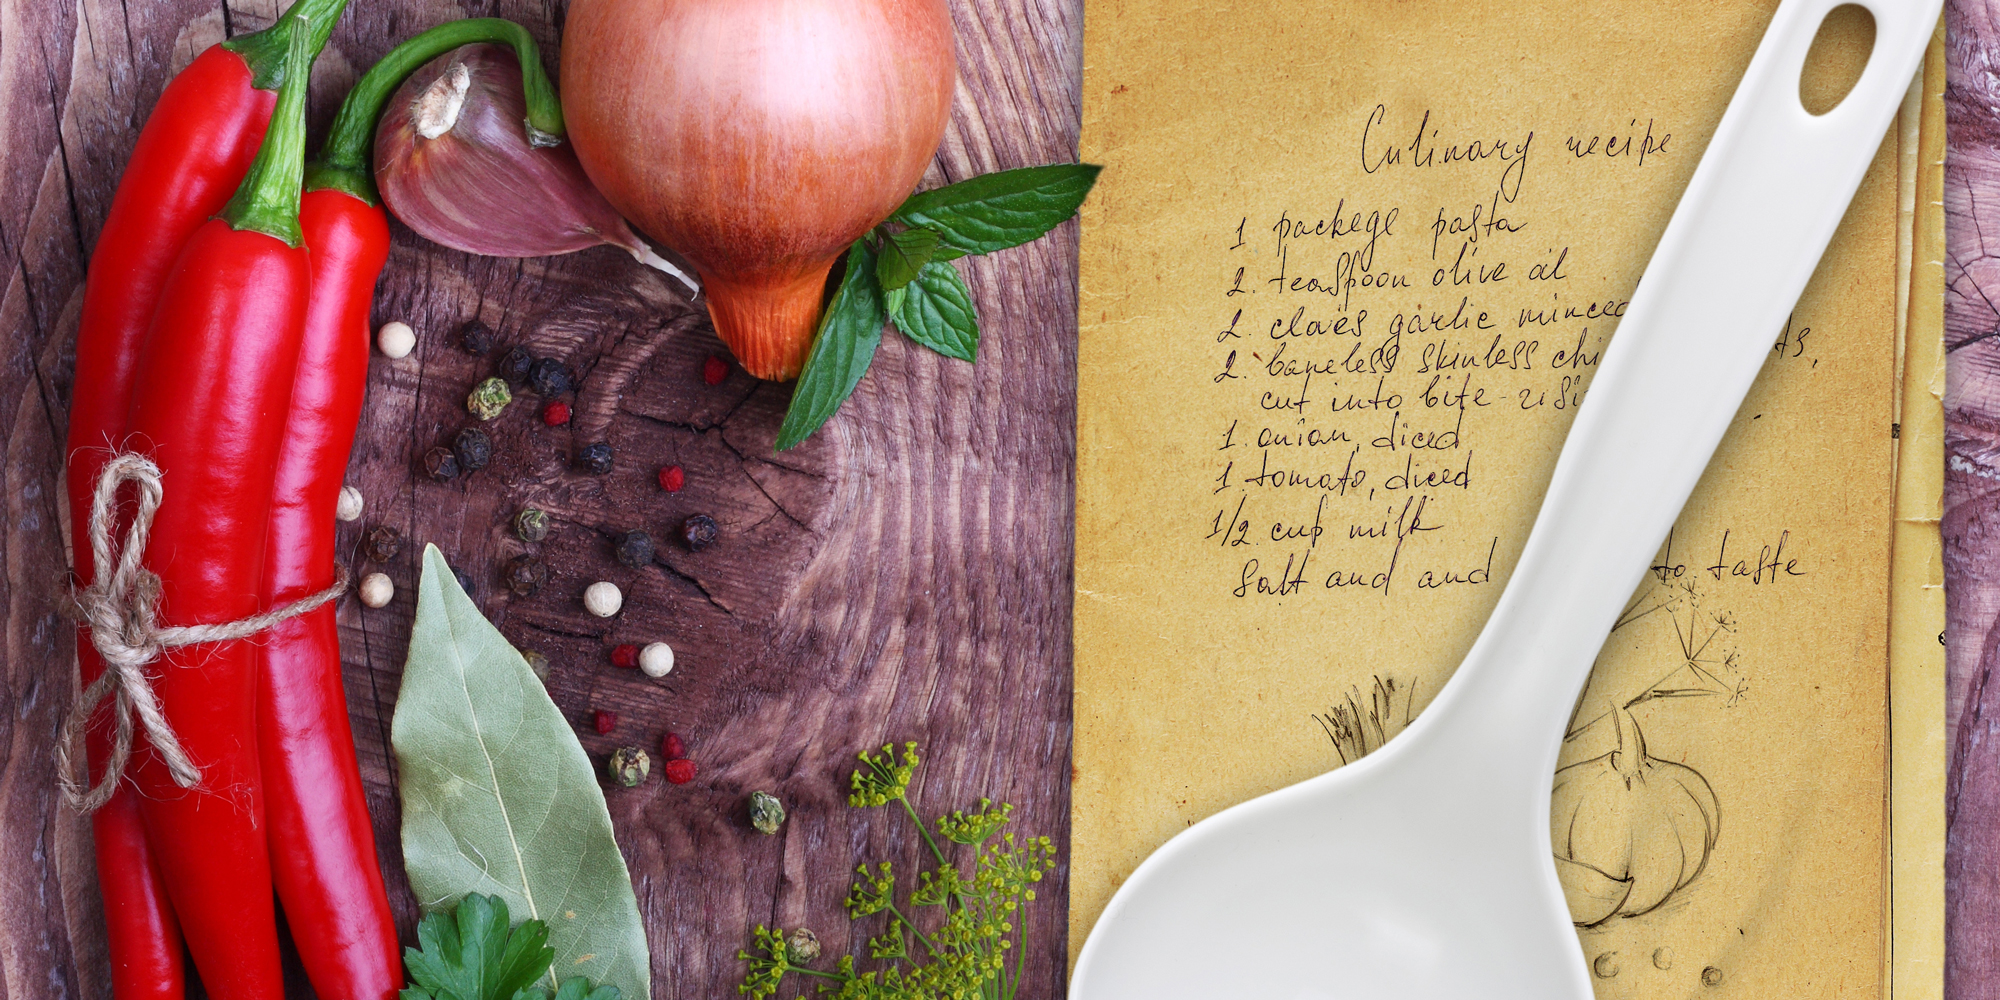 Culinary recipe
1 packege pasta
2. teaspoon olive oil
2. cloves garlic minced
2. boneless skinless
cut into bite-
1. onion, diced
1 tomato, diced
1/2 cup milk
Salt and and to taste